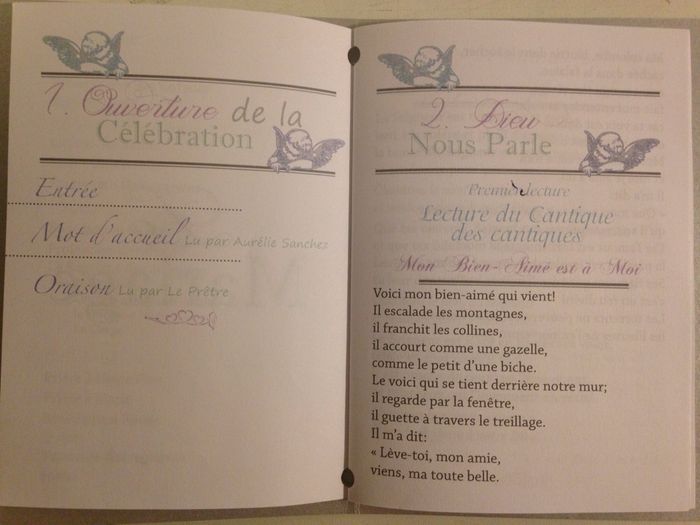 1. Ouverture de la
Célébration
Entrée
Mot d'accueil Lu par Aurélie Sanchez
Oraison Lu par Le Prêtre
2. Dieu
Nous Parle
Première lecture
Lecture du Cantique
des cantiques
Mon Bien-Aimé est à Moi
Voici mon bien-aimé qui vient!
Il escalade les montagnes,
il franchit les collines,
il accourt comme une gazelle,
comme le petit d'une biche.
Le voici qui se tient derrière notre mur;
il regarde par la fenêtre,
il guette à travers le treillage.
Il m'a dit:
« Lève-toi, mon amie,
viens, ma toute belle.